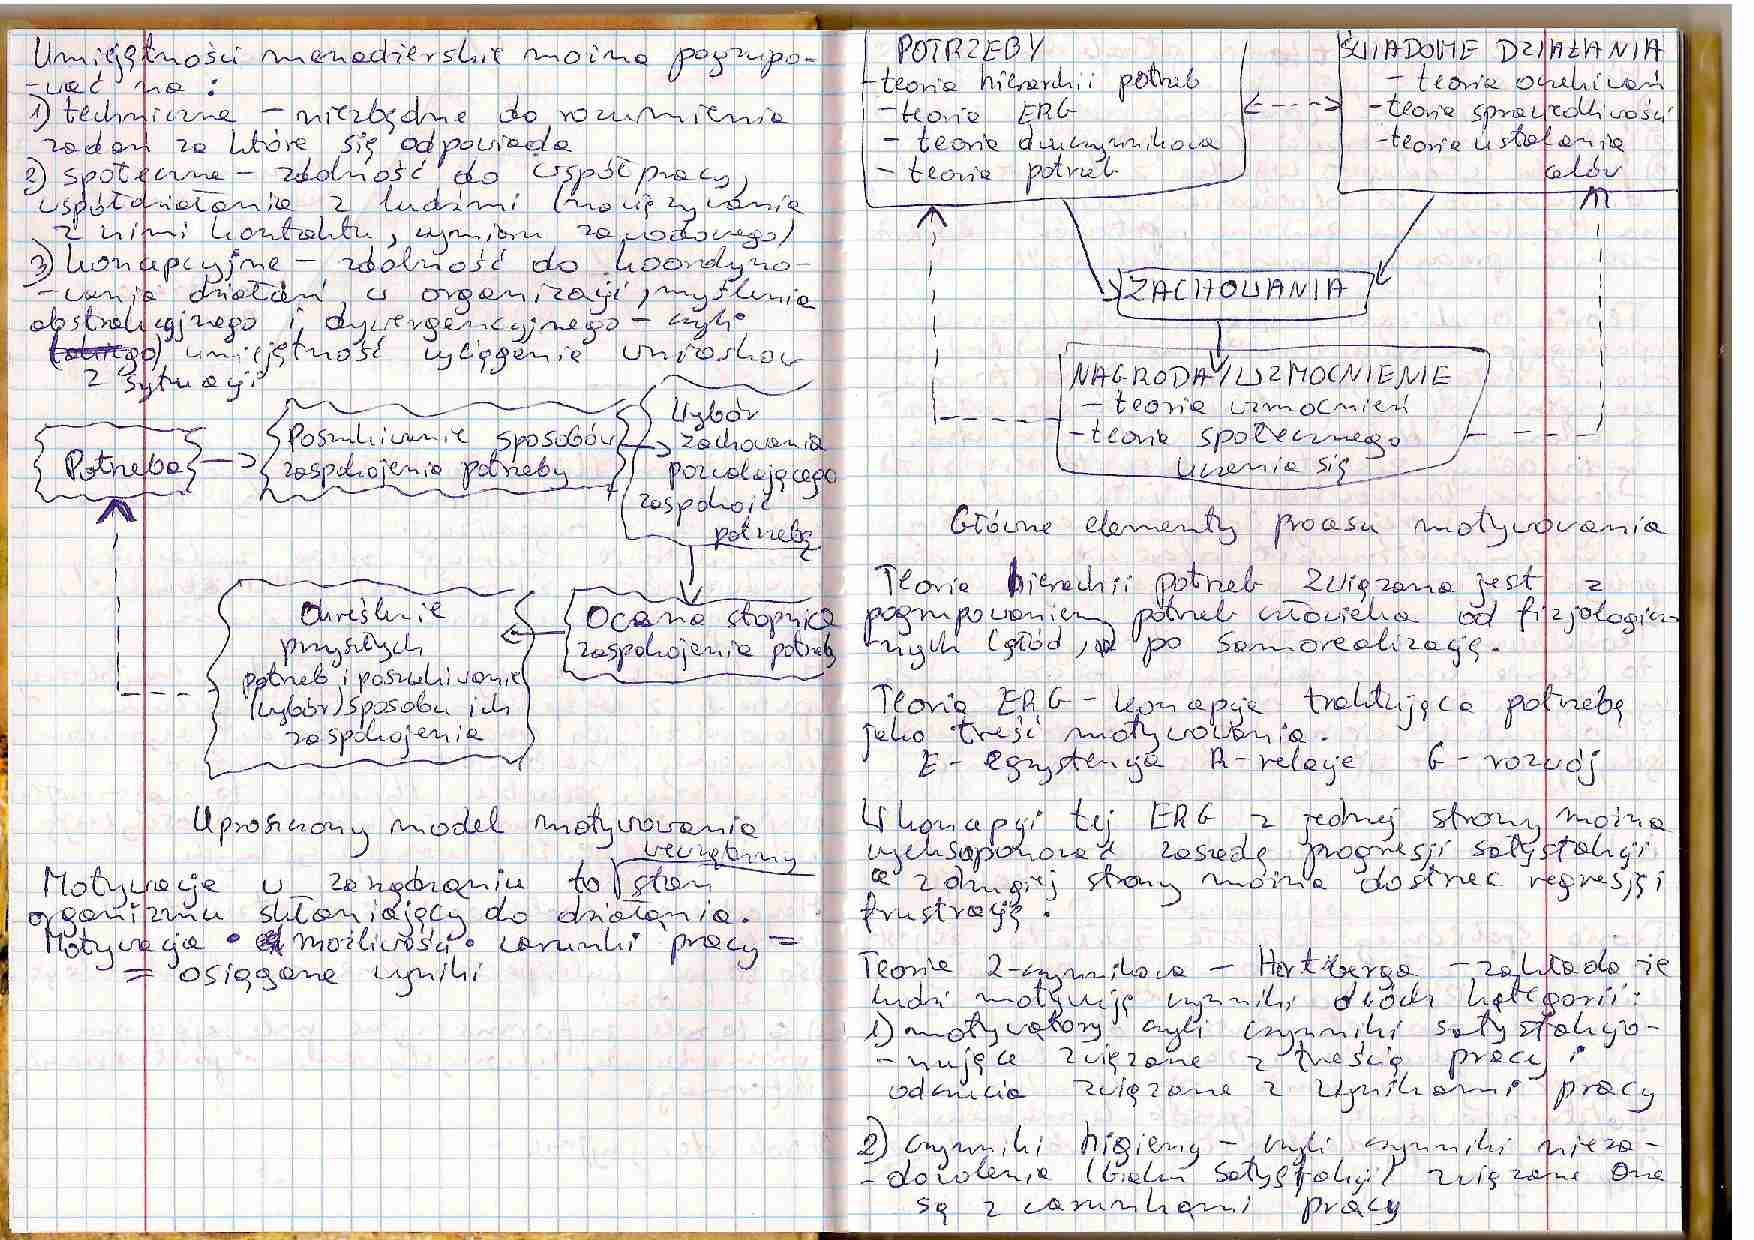 Umiejętności menadżerskie można pogrupo-
-wać na :
1) techniczne - niezbędne do rozumienia
zadań za które się odpowiada
2) społeczne - zdolność do współpracy,
współdziałania z ludźmi (nawiązywania
z nimi kontaktu, wymiaru zawodowego)
3) koncepcyjne - zdolność do koordyno-
-wania działań w organizacji, myślenia
abstrakcyjnego i dywergencyjnego - czyli
umiejętność wyciągania wniosków
z sytuacji
Potrzeba
Poszukiwanie sposobów
zaspokojenia potrzeby
Wybór
zachowania
pozwalającego
zaspokoić
potrzebę
Ocena stopnia
zaspokojenia potrzeb
Określenie
przyszłych
potrzeb i poszukiwanie
(wybór) sposobu ich
zaspokojenia
Uproszczony model motywowania
wewnętrzny
Motywacja w zarządzaniu to stan
organizmu skłaniający do działania.
Motywacja • możliwości • warunki pracy =
= osiągane wyniki
POTRZEBY
-teoria hierarchii potrzeb
-teoria ERG
- teoria dwuczynnikowa
- teoria potrzeb
ŚWIADOME DZIAŁANIA
- teoria oczekiwań
-teoria sprawiedliwości
-teoria ustalania
celów
ZACHOWANIA
NAGRODA/WZMOCNIENIE
- teoria wzmocnień
-teoria społecznego
uczenia się
Główne elementy procesu motywowania
Teoria hierarchii potrzeb związana jest z
pogrupowaniem potrzeb człowieka od fizjologicz-
nych (głód, po samorealizację.
Teoria ERG - koncepcja traktująca potrzebę
jako treść motywowania.
E - egzystencja R-relacje G - rozwój
W koncepcji tej ERG z jednej strony można
wyeksponować zasadę progresji satysfakcji
a z drugiej strony można dostrzec regresję i
frustrację.
Teoria 2-czynnikowa - Hertzberga - zakłada że
ludzi motywują czynniki dwóch kategorii:
1) motywatory czyli czynniki satysfakcjo-
-nujące związane z treścią pracy i
odczucia związane z wynikami pracy
2) czynniki higieny - czyli czynniki nieza-
-dowolenia (braku satysfakcji) związane one
są z warunkami pracy